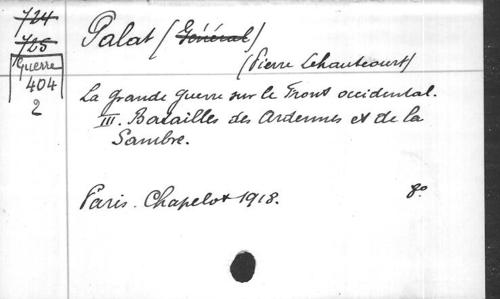 724
725
Guerre
404
2
Palat (Général)
(Pierre Lehautcourt)
La grande guerre sur le Front occidental.
III. Batailles des Ardennes et de la
Sambre.
Paris. Chapelot 1918. 8o